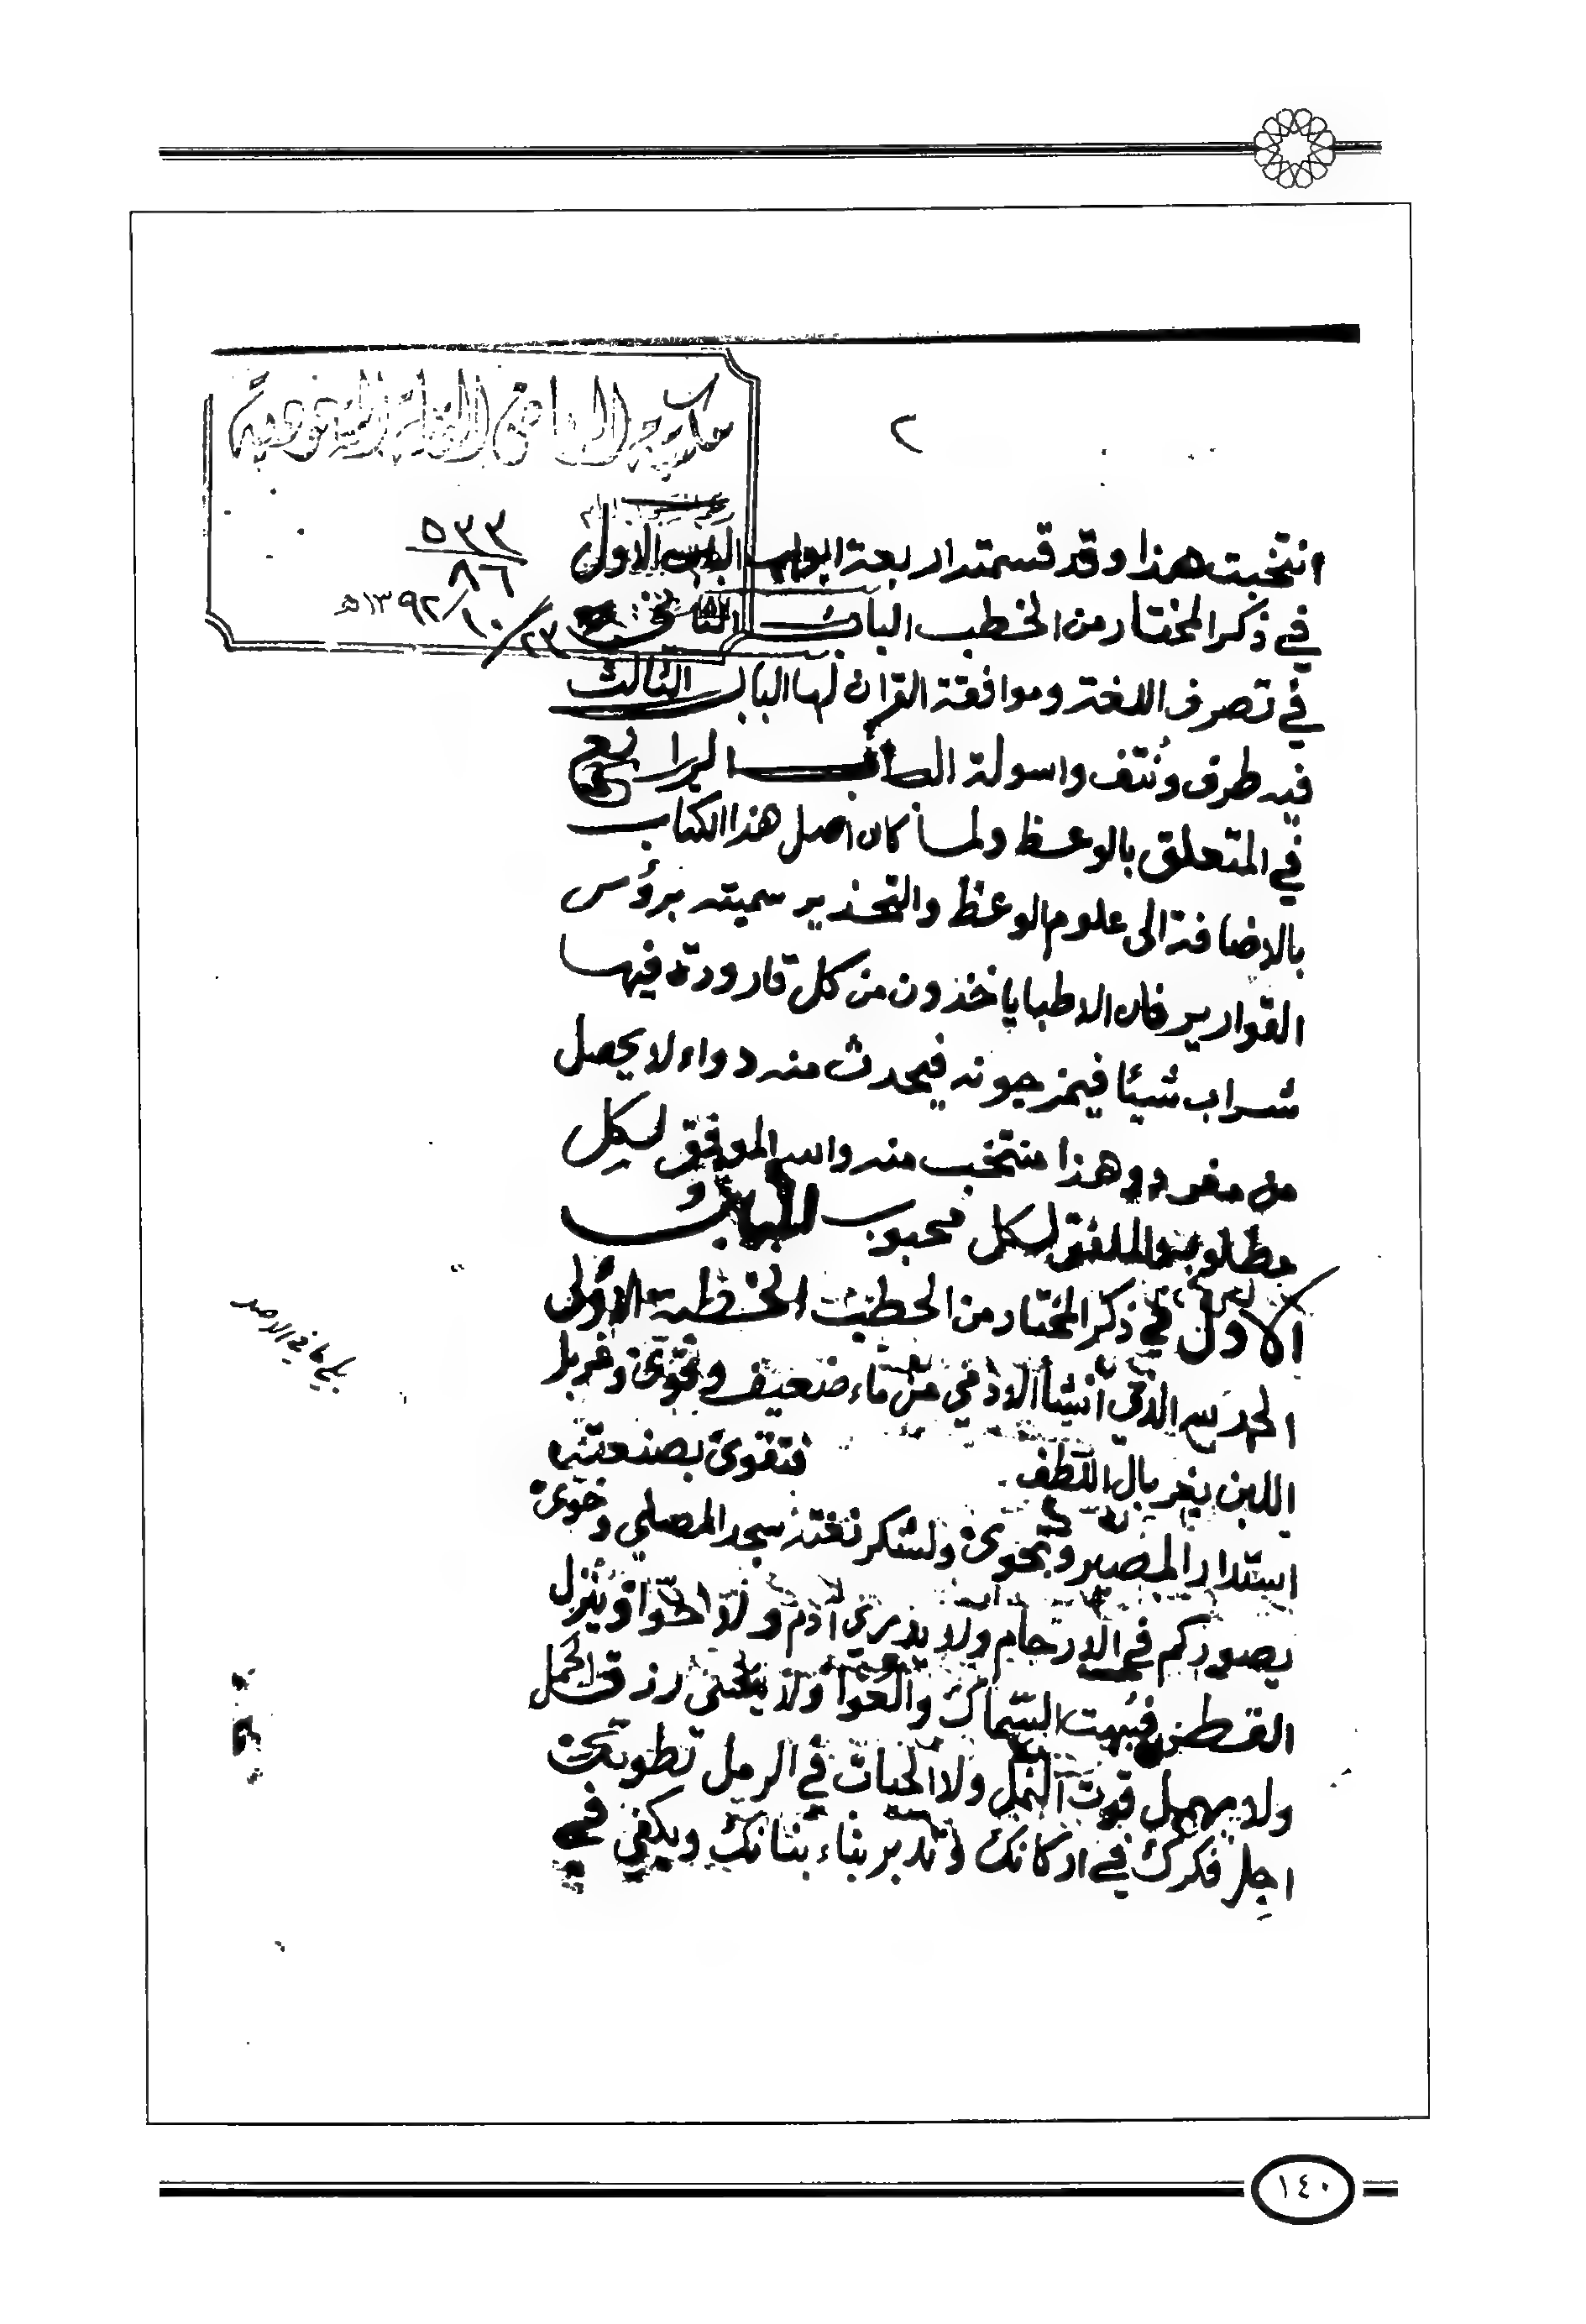 مكتبة الرياض العامة السعودية
٢
٥٣٣
٨٦
٢٣/١٠/١٣٩٢هـ
انتخبت هذا وقد قسمته اربعة ابواب الباب الاول
في ذكر المختار من الخطب الباب الثاني
في تصرف اللغة وموافقة القران لها الباب الثالث
فيه طرف ونتف واسولة الباب الرابع
في المتعلق بالوعظ ولما كان اصل هذا الكتاب
بالاضافة الى علوم الوعظ والتحذير سميته برؤس
القوارير فان الاطبا ياخذون من كل قارورة فيها
شراب شيئا فيمزجونه فيحدث منه دواء لا يحصل
من مفرد وهذا منتخب منه والله الموفق لكل
مطلوب لكل محبوب الباب
الاول في ذكر المختار من الخطب الخطبة الاولى
الحمد لله الذي انشأ الادمي من ماء ضعيف وغربل
اللبن بغربال اللطف فتقوى بصنعته
استدار المصير ولشكر نعمته سجد المصلي
يصوركم في الارحام ولا يدري ادم ولا حوا وينزل
القطر السماك والعوا ولا رزق الحمل
ولا يهمل قوت النمل ولا الحيات في الرمل
اجل فكرك في اركانك وتدبر بناء بنانك ويكفي في
كما في الاصل
١٤٠